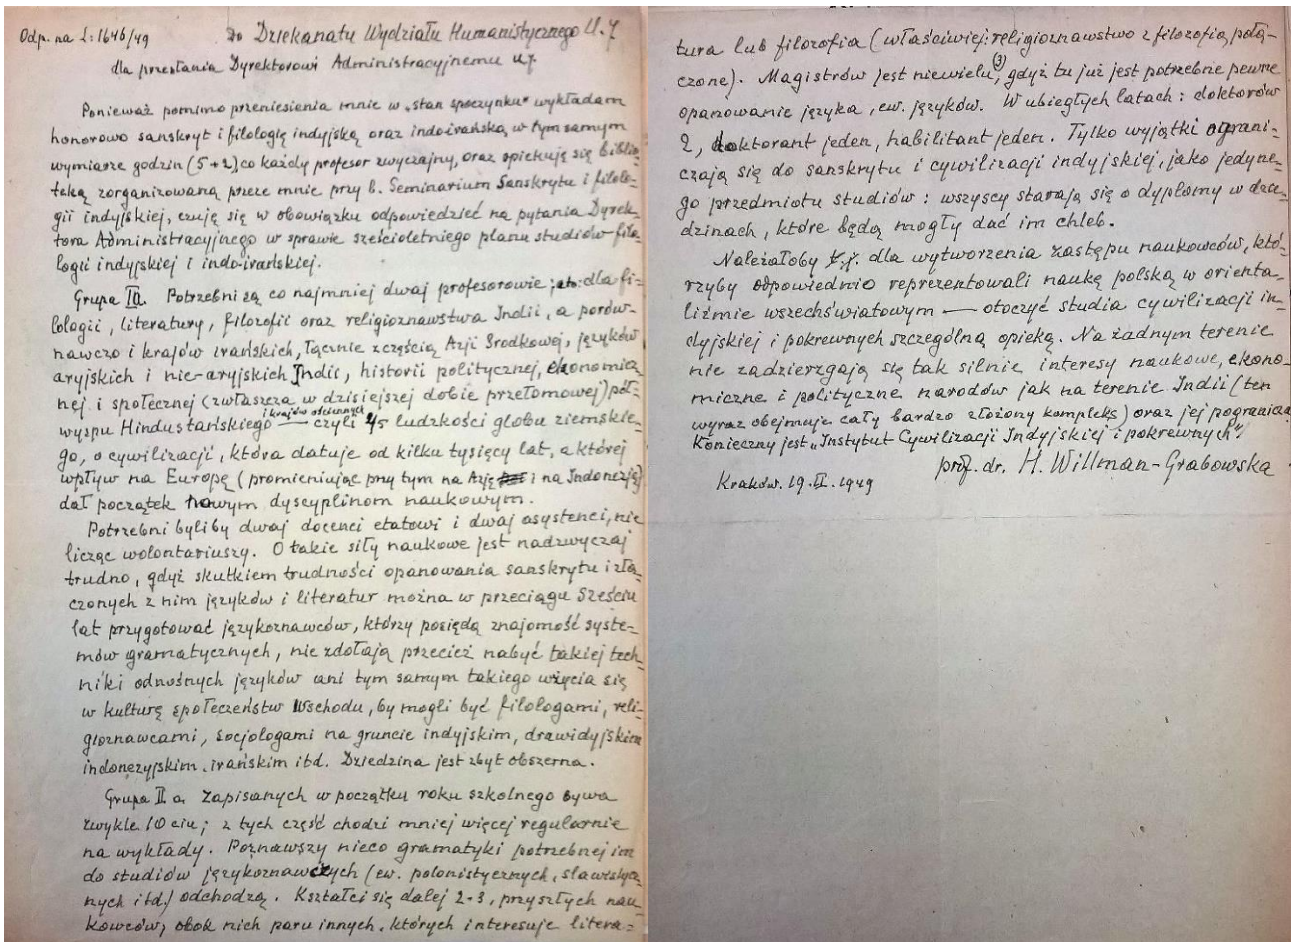 Odp. na L: 1646/49
Do Dziekanatu Wydziału Humanistycznego U.J
dla przesłania Dyrektorowi Administracyjnemu u.j.
Ponieważ pomimo przeniesienia mnie w „stan spoczynku" wykładam
honorowo sanskryt i filologię indyjską oraz indo-irańską w tym samym
wymiarze godzin (5+2), co każdy profesor zwyczajny, oraz opiekuję się biblio=
teką zorganizowaną przeze mnie przy b. Seminarium Sanskrytu i filolo=
gii indyjskiej, czuję się w obowiązku odpowiedzieć na pytania Dyrek=
tora Administracyjnego w sprawie sześcioletniego planu studiów filo=
logii indyjskiej i indo-irańskiej.
Grupa Ia. Potrzebni są co najmniej dwaj profesorowie; dla fi=
lologii, literatury, filozofii oraz religioznawstwa Indii, a porów=
nawczo i krajów irańskich, łącznie z częścią Azji Srodkowej, języków
aryjskich i nie-aryjskich Indii, historii politycznej, ekonomicz
nej i społecznej (zwłaszcza w dzisiejszej dobie przełomowej) pół=
i krajów ościennych
wyspu Hindustańskiego — czyli 1/5 ludzkości globu ziemskie=
go, o cywilizacji, która datuje od kilku tysięcy lat, a której
wpływ na Europę (promieniując przy tym na Azję i na Indonezję)
dał początek nowym dyscyplinom naukowym.
Potrzebni byliby dwaj docenci etatowi i dwaj asystenci, nie
licząc wolontariuszy. O takie siły naukowe jest nadzwyczaj
trudno, gdyż skutkiem trudności opanowania sanskrytu i złą=
czonych z nim języków i literatur można w przeciągu sześciu
lat przygotować językoznawców, którzy posiędą znajomość syste=
mów gramatycznych, nie zdołają przecież nabyć takiej tech=
niki odnośnych języków ani tym samym takiego wżycia się
w kulturę społeczeństw Wschodu, by mogli być filologami, reli=
gioznawcami, socjologami na gruncie indyjskim, drawidyjskim
indonezyjskim, irańskim itd. Dziedzina jest zbyt obszerna.
Grupa II a. Zapisanych w początku roku szkolnego bywa
zwykle 10ciu; z tych część chodzi mniej więcej regularnie
na wykłady. Poznawszy nieco gramatyki potrzebnej im
do studiów językoznawczych (ew. polonistycznych, slawistycz
nych itd.) odchodzą. Kształci się dalej 2-3, przyszłych nau=
kowców, obok nich paru innych, których interesuje litera=
tura lub filozofia (właściwiej: religioznawstwo z filozofią połą=
czone). Magistrów jest niewielu (3), gdyż tu już jest potrzebne pewne
opanowanie języka, ew. języków. W ubiegłych latach: doktorów
2, doktorant jeden, habilitant jeden. Tylko wyjątki ograni=
czają się do sanskrytu i cywilizacji indyjskiej, jako jedyne=
go przedmiotu studiów: wszyscy starają się o dyplomy w dzie=
dzinach, które będą mogły dać im chleb.
Należałoby dla wytworzenia zastępu naukowców, któ=
rzyby odpowiednio reprezentowali naukę polską w orienta=
liźmie wszechświatowym — otoczyć studia cywilizacji in=
dyjskiej i pokrewnych szczególną opieką. Na żadnym terenie
nie zadzierzgają się tak silnie interesy naukowe, ekono=
miczne i polityczne narodów jak na terenie Indii (ten
wyraz obejmuje cały bardzo złożony kompleks) oraz jej pogranicza
Konieczny jest „Instytut Cywilizacji Indyjskiej i pokrewnych".
prof. dr. H. Willman-Grabowska
Kraków. 19.II.1949